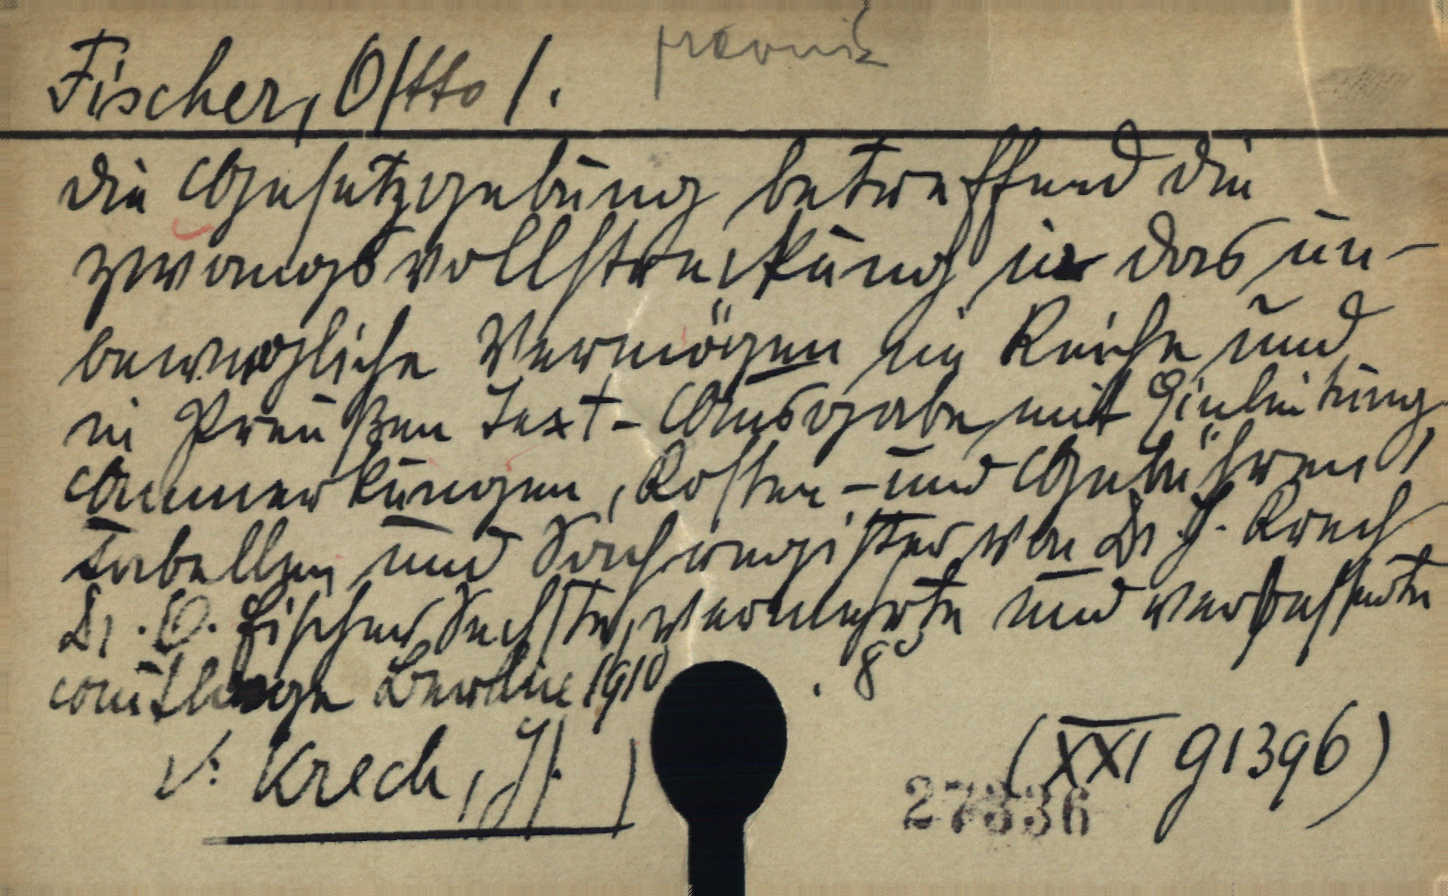 Fischer, O/tto/.
pravnik
Die Gesetzgebung betreffend die
Zwangsvollstreckung in das un-
bewegliche Vermögen im Reiche und
in Preußen Text-Ausgabe mit Einleitung,
Anmerkungen, Kosten- und Gebühren,
Tabellen und Sachregister von Dr J. Krech
Dr. O. Fischer Sechste, vermehrte und verbesserte
Auflage Berlin 1910 . 8°
v: Krech, J/. /
(XXI G 1396)
27336